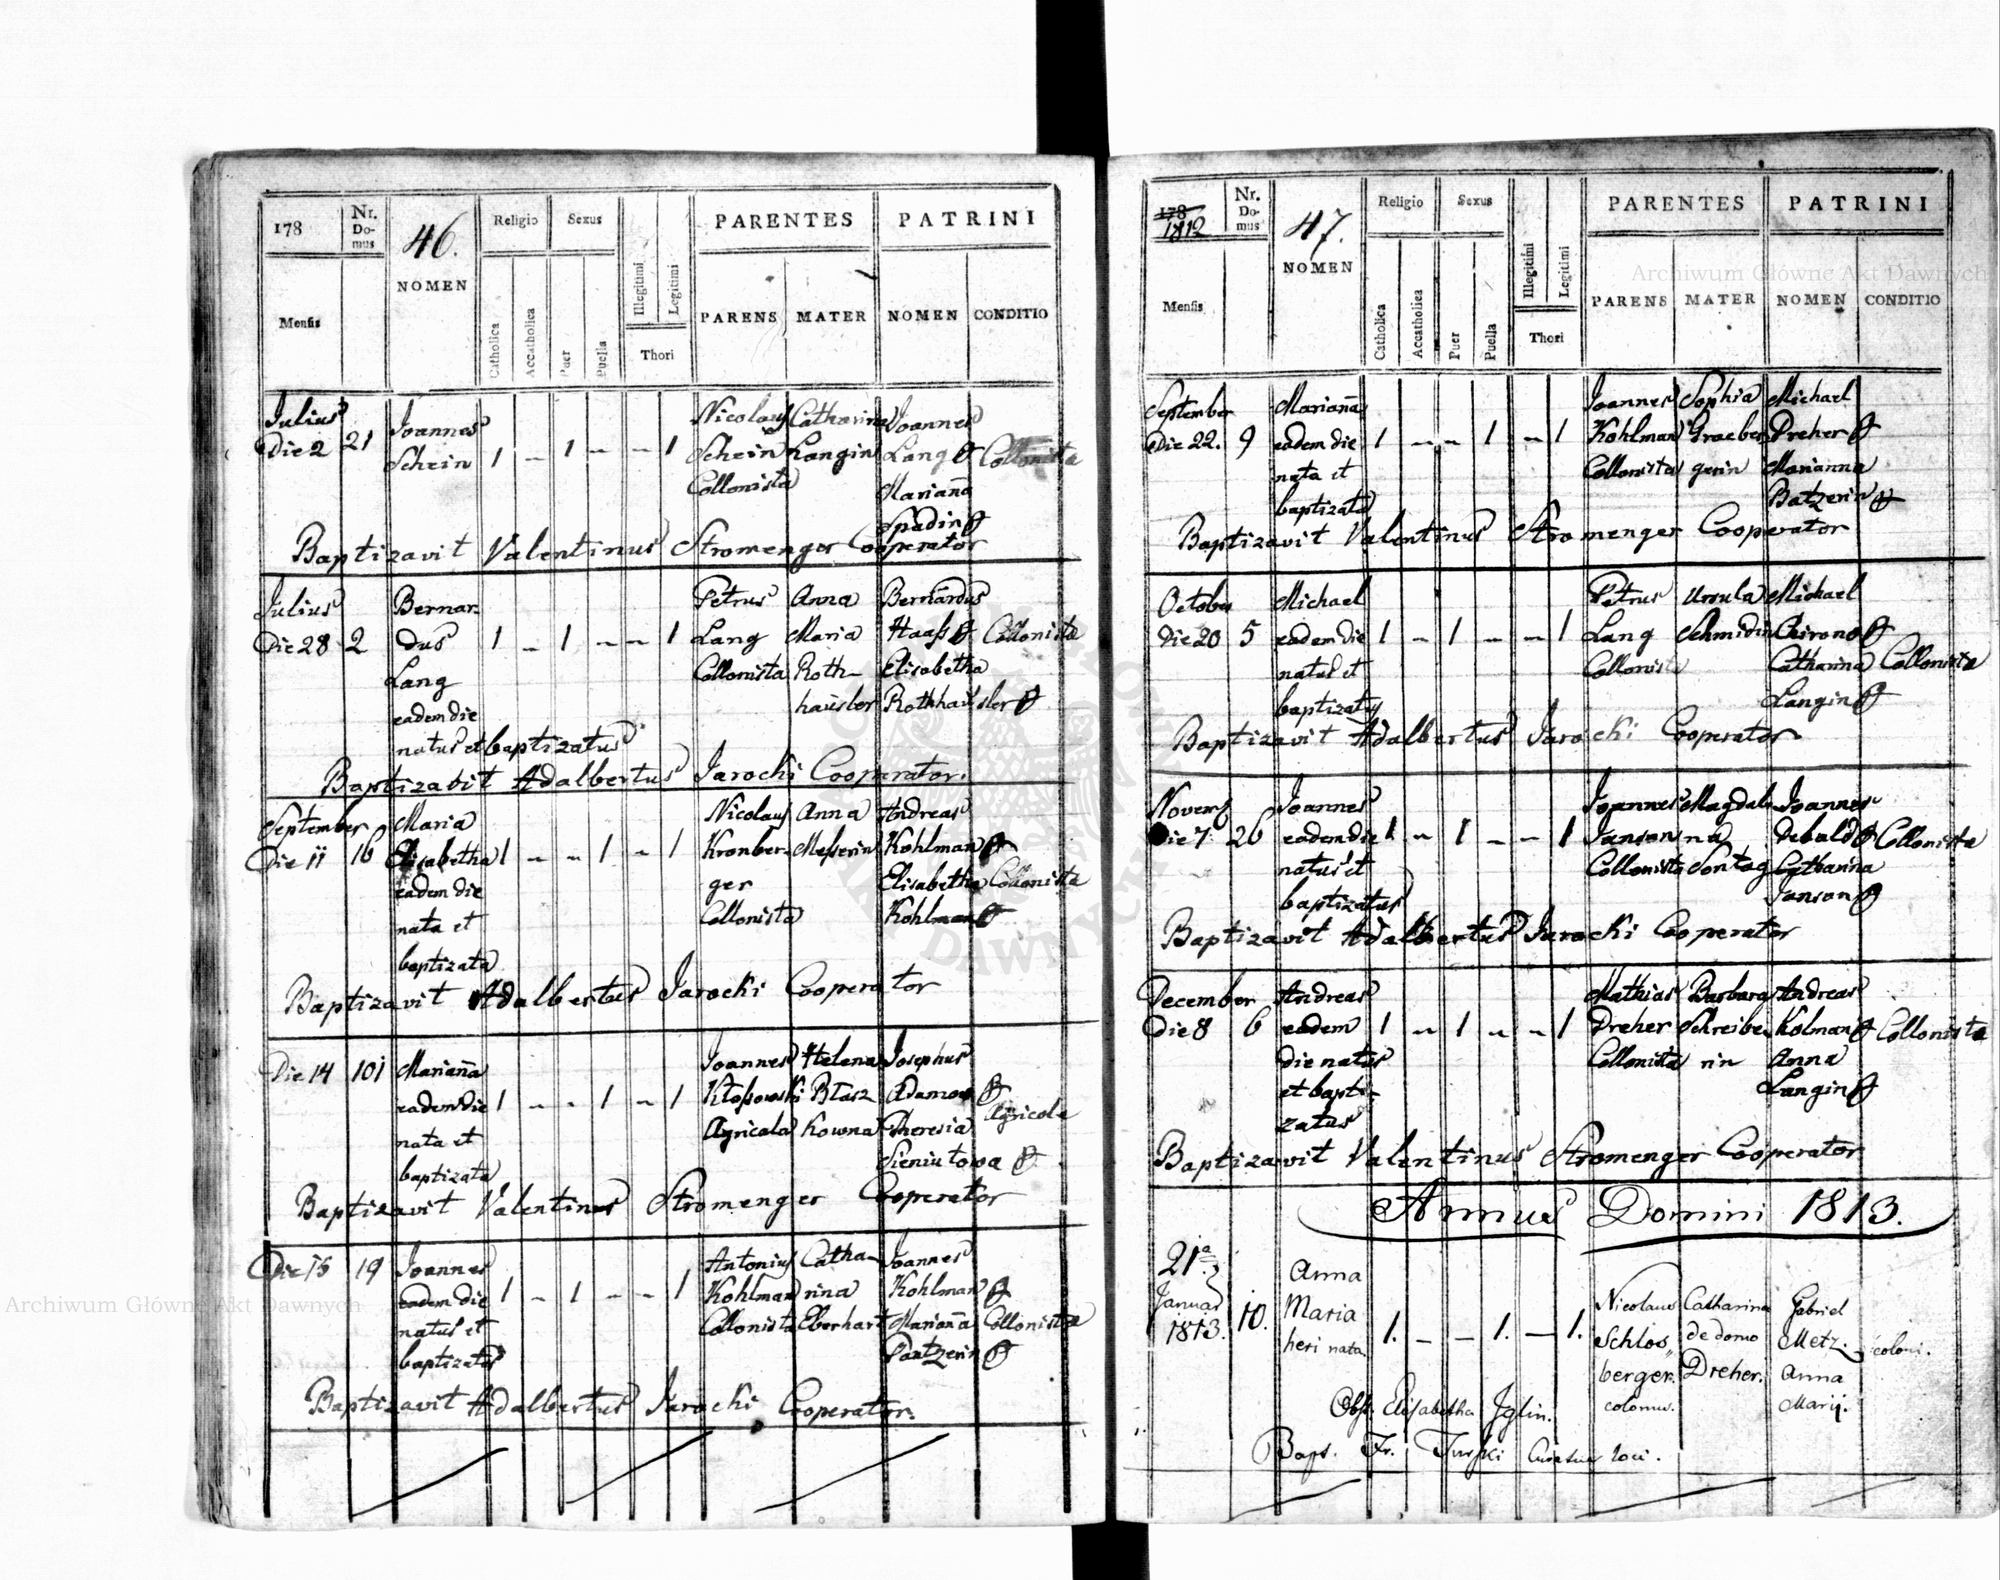 178
Nr. Domus
46.
NOMEN
Religio
Sexus
Illegitimi
Legitimi
PARENTES
PATRINI
Mensis
Catholica
Accatholica
Puer
Puella
Thori
PARENS
MATER
NOMEN
CONDITIO
Julius Die 2
21
Joannes Schein
1 – 1 – – 1
Nicolaus Schein Collonista
Catharina Langin
Joannes Lang
Mariana Spadin
Collonista
Baptizavit Valentinus Stromenger Cooperator
Julius Die 28
2
Bernardus Lang eadem die natus et baptizatus
1 – 1 – – 1
Petrus Lang Collonista
Anna Maria Rothhaüsler
Bernardus Haass
Elisabetha Rothhaüsler
Collonista
Baptizavit Adalbertus Jarocki Cooperator.
September Die 11
16
Maria Elisabetha eadem die nata et baptizata
1 – – 1 – 1
Nicolaus Kronberger Collonista
Anna Messerin
Andreas Kohlman
Elisabetha Kohlman
Collonista
Baptizavit Adalbertus Jarocki Cooperator
Die 14
101
Mariana eadem die nata et baptizata
1 – – 1 – 1
Joannes Kłossowski Agricola
Helena Błaszkowna
Josephus Adamow
Theresia Sieniutowa
Agricola
Baptizavit Valentinus Stromenger Cooperator
Die 15
19
Joannes eadem die natus et baptizatus
1 – 1 – – 1
Antonius Kohlman Collonista
Catharina Eberhart
Joannes Kohlman
Mariana Pantzerin
Collonista
Baptizavit Adalbertus Jarocki Cooperator.
178
1812
Nr. Domus
47.
NOMEN
Religio
Sexus
Illegitimi
Legitimi
PARENTES
PATRINI
Mensis
Catholica
Accatholica
Puer
Puella
Thori
PARENS
MATER
NOMEN
CONDITIO
September Die 22.
9
Mariana eadem die nata et baptizata
1 – – 1 – 1
Joannes Kohlman Collonista
Sophia Graebergerin
Michael Dreher
Marianna Batzerin
Baptizavit Valentinus Stromenger Cooperator
October Die 20
5
Michael eadem die natus et baptizatus
1 – 1 – – 1
Petrus Lang Collonista
Ursula Schmidin
Michael Chirono
Catharina Langin
Collonista
Baptizavit Adalbertus Jarocki Cooperator
Die 7
26
Joannes eadem die natus et baptizatus
1 – 1 – – 1
Joannes Janson Collonista
Magdalena Sontag
Joannes Debald
Catharina Janson
Collonista
Baptizavit Adalbertus Jarocki Cooperator
December Die 8
6
Andreas eadem die natus et baptizatus
1 – 1 – – 1
Mathias Dreher Collonista
Barbara Schreiberin
Andreas Kolman
Anna Langin
Collonista
Baptizavit Valentinus Stromenger Cooperator
Annus Domini 1813.
21a Januar 1813.
10.
Anna Maria heri nata.
1. – – 1. – 1.
Nicolaus Schlosberger. colonus.
Catharina de domo Dreher.
Gabriel Metz.
Anna Marij.
coloni.
Obst. Elisabetha Iglin.
Bapt. Fr. Turski Curatus loci.
Archiwum Główne Akt Dawnych
Archiwum Główne Akt Dawnych